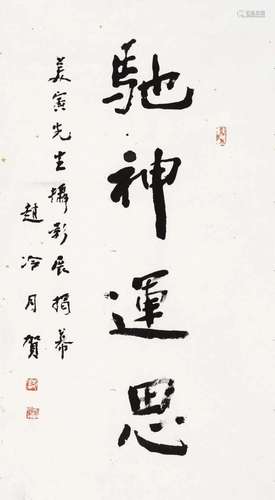 馳神運思
美寅先生攝影展揭幕
趙冷月賀